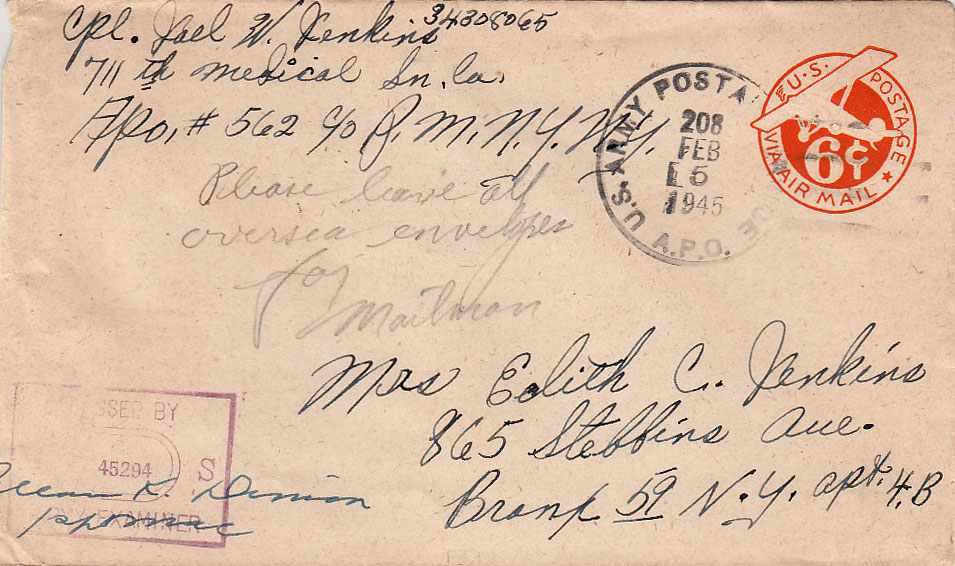 Cpl. Joel W. Jenkins 34308065
711th medical Sn. Co.
Apo, # 562 c/o P.M. N.Y. N.Y.
U.S. ARMY POSTAL
208
FEB
5
1945
A.P.O.
U.S. POSTAGE
6¢
VIA AIR MAIL
Please leave all
oversea envelopes
for
Mailman
Mrs Edith C. Jenkins
865 Stebbins Ave.
Bronx 59 N.Y. apt. 4.B
BY
45294 S
EXAMINER